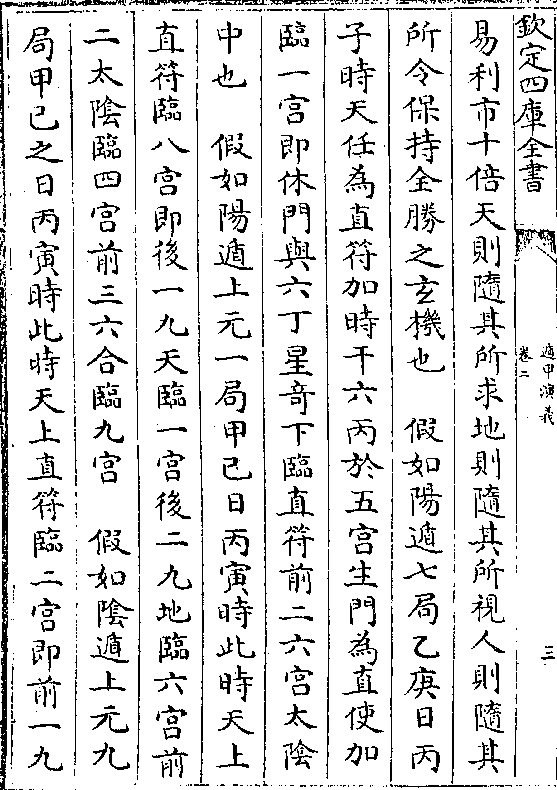 欽定四庫全書
遁甲演義
卷二
三
易利市十倍天則隨其所求地則隨其所視人則隨其
所令保持全勝之玄機也　假如陽遁七局乙庚日丙
子時天任為直符加時干六丙於五宮生門為直使加
臨一宮即休門與六丁星竒下臨直符前二六宮太陰
中也　假如陽遁上元一局甲己日丙寅時此時天上
直符臨八宮即後一九天臨一宮後二九地臨六宮前
二太陰臨四宮前三六合臨九宮　假如陰遁上元九
局甲己之日丙寅時此時天上直符臨二宮即前一九